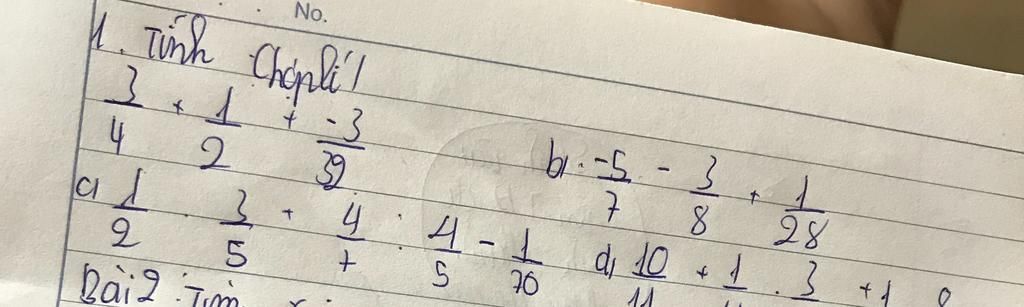 No.
1. Tính hợp lí
3/4 + 1/2 + -3/32 b) -5/7 - 3/8 + 1/28
c) 1/2 . 3/5 + 4/7 : 4/5 - 1/70 d) 10/11 + 1 . 3 + 1
Bài 2: